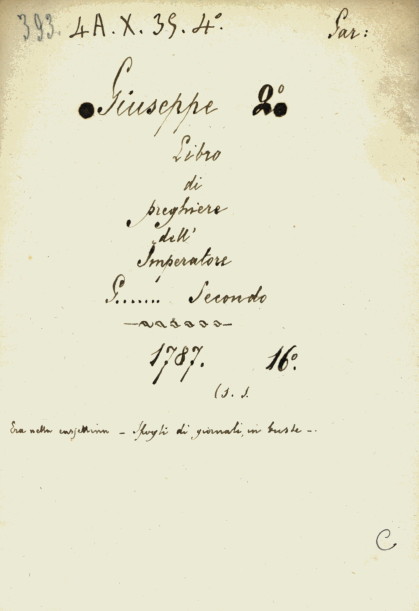 393. 4A.X.39.4°. Sar:
Giuseppe 2°
Libro
di
preghiere
dell'
Imperatore
G....... Secondo
1787. 16°.
(s. s.
Era nella - Spogli di giornali, in buste -.
C